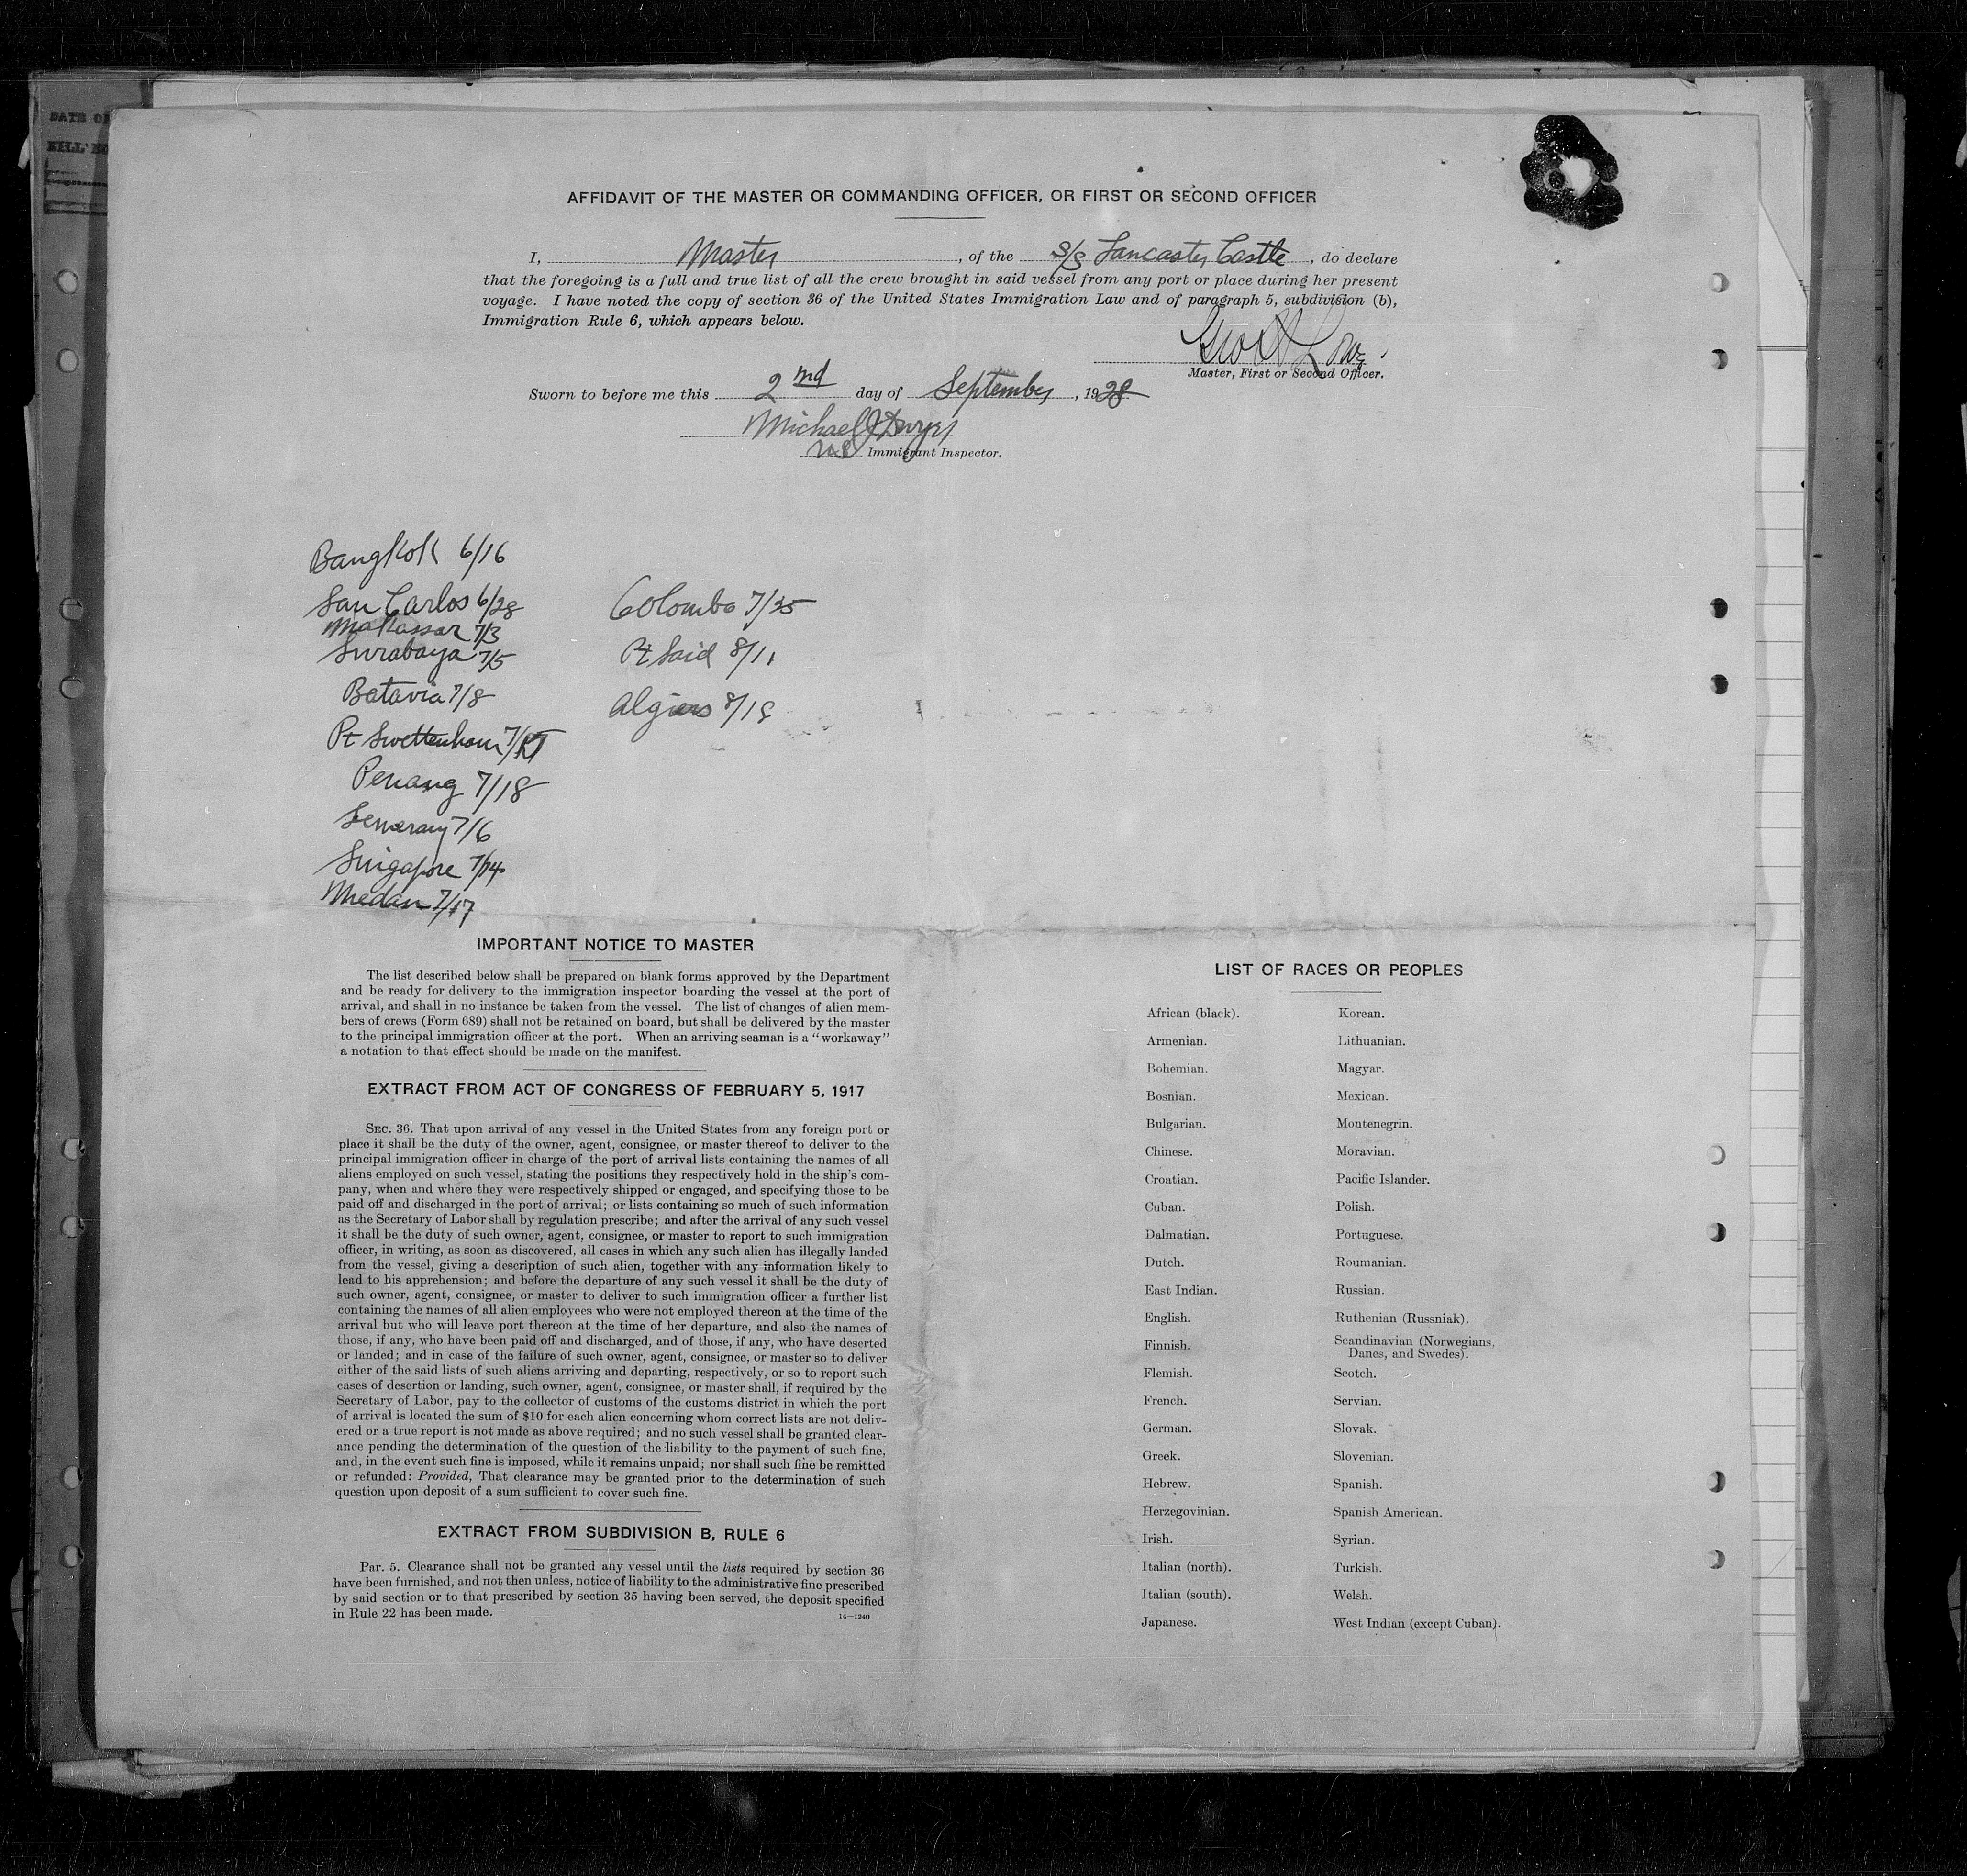 DATE OF
BILL NO
AFFIDAVIT OF THE MASTER OR COMMANDING OFFICER, OR FIRST OR SECOND OFFICER
I, Master, of the S/S Lancaster Castle, do declare
that the foregoing is a full and true list of all the crew brought in said vessel from any port or place during her present
voyage. I have noted the copy of section 36 of the United States Immigration Law and of paragraph 5, subdivision (b),
Immigration Rule 6, which appears below.
Master, First or Second Officer.
Sworn to before me this 2nd day of September, 1928
Michael J Dwyer
Immigrant Inspector.
Bangkok 6/16
San Carlos 6/28
Makassar 7/3
Surabaya 7/5
Batavia 7/8
Pt Swettenham
Penang 7/18
7/6
Singapore 7/14
Medan 7/17
Colombo 7/25
Pt Said 8/11
Algiers
IMPORTANT NOTICE TO MASTER
The list described below shall be prepared on blank forms approved by the Department
and be ready for delivery to the immigration inspector boarding the vessel at the port of
arrival, and shall in no instance be taken from the vessel. The list of changes of alien mem-
bers of crews (Form 689) shall not be retained on board, but shall be delivered by the master
to the principal immigration officer at the port. When an arriving seaman is a "workaway"
a notation to that effect should be made on the manifest.
EXTRACT FROM ACT OF CONGRESS OF FEBRUARY 5, 1917
SEC. 36. That upon arrival of any vessel in the United States from any foreign port or
place it shall be the duty of the owner, agent, consignee, or master thereof to deliver to the
principal immigration officer in charge of the port of arrival lists containing the names of all
aliens employed on such vessel, stating the positions they respectively hold in the ship's com-
pany, when and where they were respectively shipped or engaged, and specifying those to be
paid off and discharged in the port of arrival; or lists containing so much of such information
as the Secretary of Labor shall by regulation prescribe; and after the arrival of any such vessel
it shall be the duty of such owner, agent, consignee, or master to report to such immigration
officer, in writing, as soon as discovered, all cases in which any such alien has illegally landed
from the vessel, giving a description of such alien, together with any information likely to
lead to his apprehension; and before the departure of any such vessel it shall be the duty of
such owner, agent, consignee, or master to deliver to such immigration officer a further list
containing the names of all alien employees who were not employed thereon at the time of the
arrival but who will leave port thereon at the time of her departure, and also the names of
those, if any, who have been paid off and discharged, and of those, if any, who have deserted
or landed; and in case of the failure of such owner, agent, consignee, or master so to deliver
either of the said lists of such aliens arriving and departing, respectively, or so to report such
cases of desertion or landing, such owner, agent, consignee, or master shall, if required by the
Secretary of Labor, pay to the collector of customs of the customs district in which the port
of arrival is located the sum of $10 for each alien concerning whom correct lists are not deliv-
ered or a true report is not made as above required; and no such vessel shall be granted clear-
ance pending the determination of the question of the liability to the payment of such fine,
and, in the event such fine is imposed, while it remains unpaid; nor shall such fine be remitted
or refunded: Provided, That clearance may be granted prior to the determination of such
question upon deposit of a sum sufficient to cover such fine.
EXTRACT FROM SUBDIVISION B, RULE 6
Par. 5. Clearance shall not be granted any vessel until the lists required by section 36
have been furnished, and not then unless, notice of liability to the administrative fine prescribed
by said section or to that prescribed by section 35 having been served, the deposit specified
in Rule 22 has been made.
14—1240
LIST OF RACES OR PEOPLES
African (black).
Armenian.
Bohemian.
Bosnian.
Bulgarian.
Chinese.
Croatian.
Cuban.
Dalmatian.
Dutch.
East Indian.
English.
Finnish.
Flemish.
French.
German.
Greek.
Hebrew.
Herzegovinian.
Irish.
Italian (north).
Italian (south).
Japanese.
Korean.
Lithuanian.
Magyar.
Mexican.
Montenegrin.
Moravian.
Pacific Islander.
Polish.
Portuguese.
Roumanian.
Russian.
Ruthenian (Russniak).
Scandinavian (Norwegians,
Danes, and Swedes).
Scotch.
Servian.
Slovak.
Slovenian.
Spanish.
Spanish American.
Syrian.
Turkish.
Welsh.
West Indian (except Cuban).